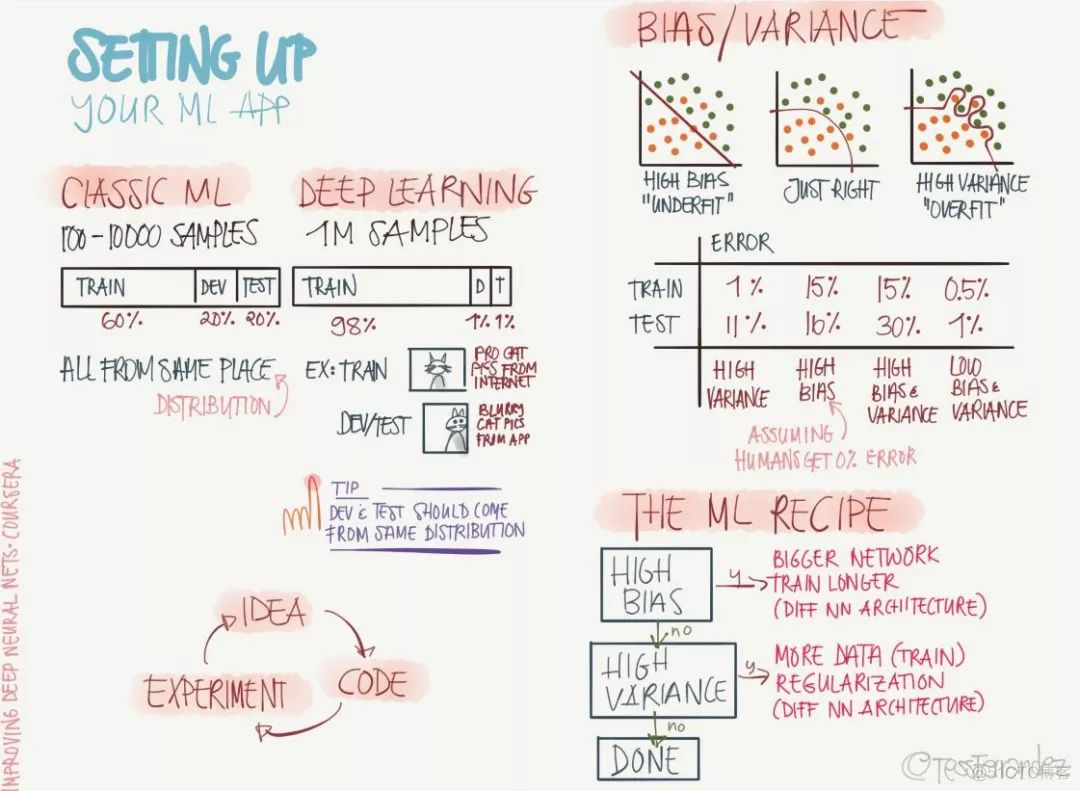 SETTING UP
YOUR ML APP
CLASSIC ML
100-10000 SAMPLES
TRAIN DEV TEST
60% 20% 20%
ALL FROM SAME PLACE
DISTRIBUTION
DEEP LEARNING
1M SAMPLES
TRAIN D T
98% 1% 1%
EX: TRAIN
PRO CAT
PICS FROM
INTERNET
DEV/TEST
BLURRY
CAT PICS
FROM APP
TIP
DEV & TEST SHOULD COME
FROM SAME DISTRIBUTION
IDEA
CODE
EXPERIMENT
IMPROVING DEEP NEURAL NETS · COURSERA
BIAS/VARIANCE
HIGH BIAS
"UNDERFIT"
JUST RIGHT
HIGH VARIANCE
"OVERFIT"
ERROR
TRAIN 1% 15% 15% 0.5%
TEST 11% 16% 30% 1%
HIGH
VARIANCE
HIGH
BIAS
HIGH
BIAS &
VARIANCE
LOW
BIAS &
VARIANCE
ASSUMING
HUMANS GET 0% ERROR
THE ML RECIPE
HIGH
BIAS
y
BIGGER NETWORK
TRAIN LONGER
(DIFF NN ARCHITECTURE)
no
HIGH
VARIANCE
y
MORE DATA (TRAIN)
REGULARIZATION
(DIFF NN ARCHITECTURE)
no
DONE
@TessFerrandez
@51CTO博客